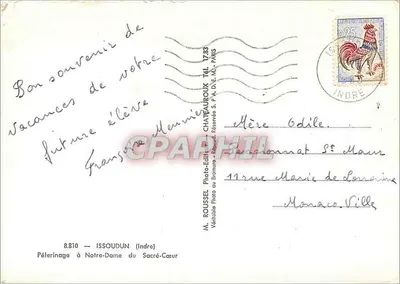 Bon souvenir de
vacances de votre
future élève
Françoise Meunier
8.810 — ISSOUDUN (Indre)
Pélerinage à Notre-Dame du Sacré-Cœur
M. ROUSSEL Photo-Editeur CHATEAUROUX Tél. 17.83
Véritable Photo au Bromure
PARIS
CPARPHIL
INDRE
Mère Odile
Pensionnat St Maur
11 rue Marie de Lorraine
Monaco. Ville